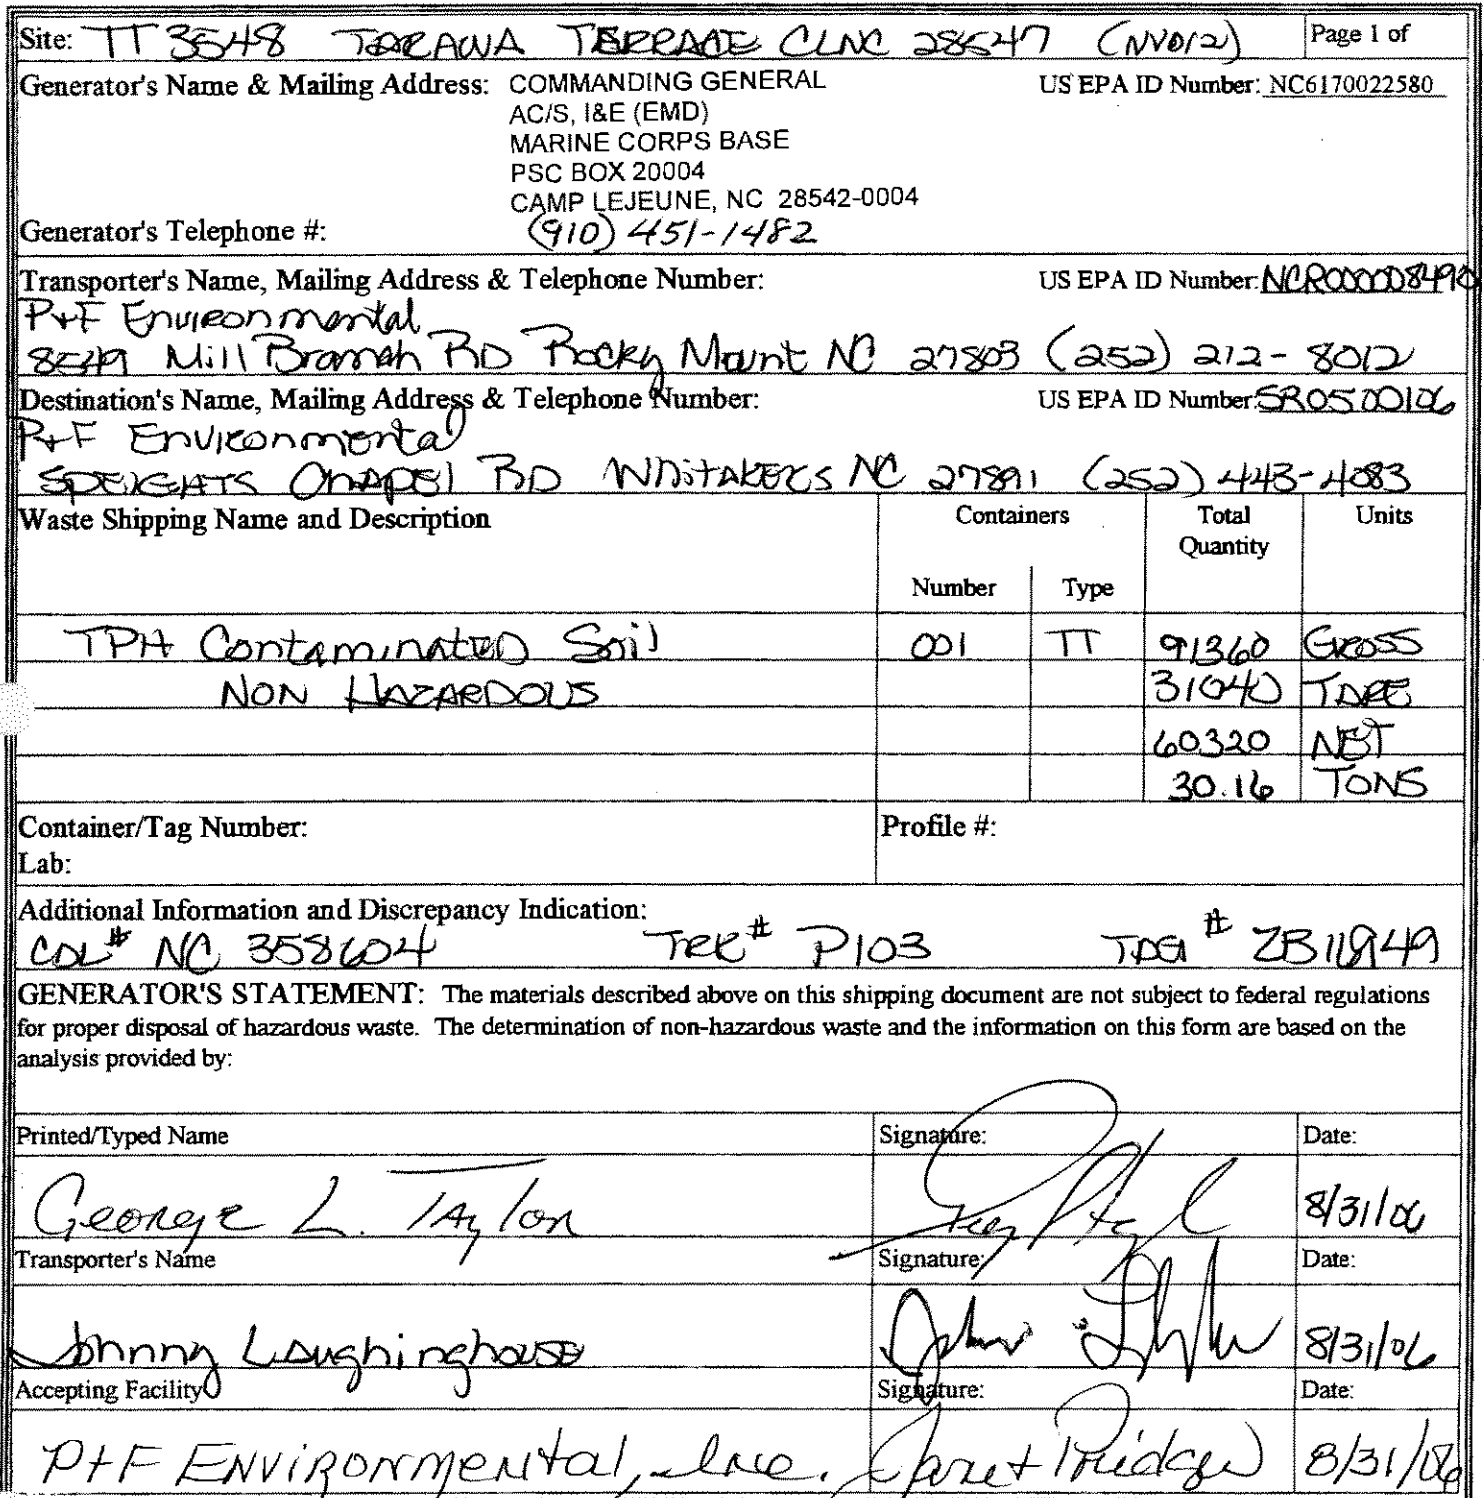 Site: TT 3548 TARAWA TERRACE CLNC 28547 (NV012) Page 1 of
Generator's Name & Mailing Address: COMMANDING GENERAL US EPA ID Number: NC6170022580
AC/S, I&E (EMD)
MARINE CORPS BASE
PSC BOX 20004
CAMP LEJEUNE, NC 28542-0004
Generator's Telephone #: (910) 451-1482
Transporter's Name, Mailing Address & Telephone Number: US EPA ID Number: NCR000008490
P+F Environmental
8549 Mill Branch RD Rocky Mount NC 27803 (252) 212-8012
Destination's Name, Mailing Address & Telephone Number: US EPA ID Number: SR0500106
P+F Environmental
SPEIGHTS Chapel RD WHITAKERS NC 27891 (252) 443-4083
Waste Shipping Name and Description Containers Total Quantity Units
Number Type
TPH Contaminated Soil 001 TT 91360 GROSS
NON HAZARDOUS 31040 TARE
60320 NET
30.16 TONS
Container/Tag Number: Profile #:
Lab:
Additional Information and Discrepancy Indication:
CDL# NC 358604 TRK# P103 TAG# ZB11949
GENERATOR'S STATEMENT: The materials described above on this shipping document are not subject to federal regulations
for proper disposal of hazardous waste. The determination of non-hazardous waste and the information on this form are based on the
analysis provided by:
Printed/Typed Name Signature: Date:
George L. Taylor 8/31/06
Transporter's Name Signature: Date:
Johnny Laughinghouse 8/31/06
Accepting Facility Signature: Date:
P+F Environmental, Inc. Janet Pridgen 8/31/06